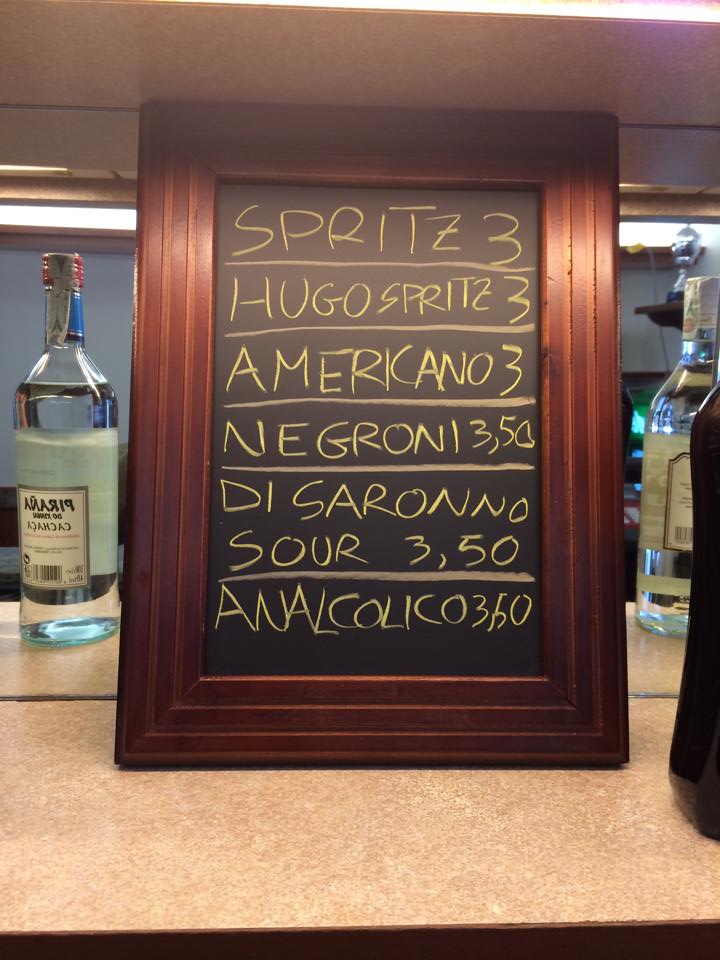 SPRITZ 3
HUGO SPRITZ 3
AMERICANO 3
NEGRONI 3,50
DI SARONNO
SOUR 3,50
ANALCOLICO 3,50
PIRAÑA
DO XINGU
CACHAÇA